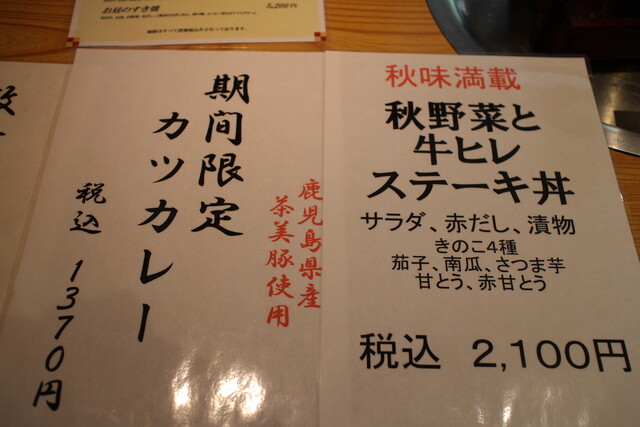 お昼のすき焼
5,200円
秋味満載
秋野菜と
牛ヒレ
ステーキ丼
サラダ、赤だし、漬物
きのこ4種
茄子、南瓜、さつま芋
甘とう、赤甘とう
税込 2,100円
鹿児島県産
茶美豚使用
期間限定
カツカレー
税込 1370円